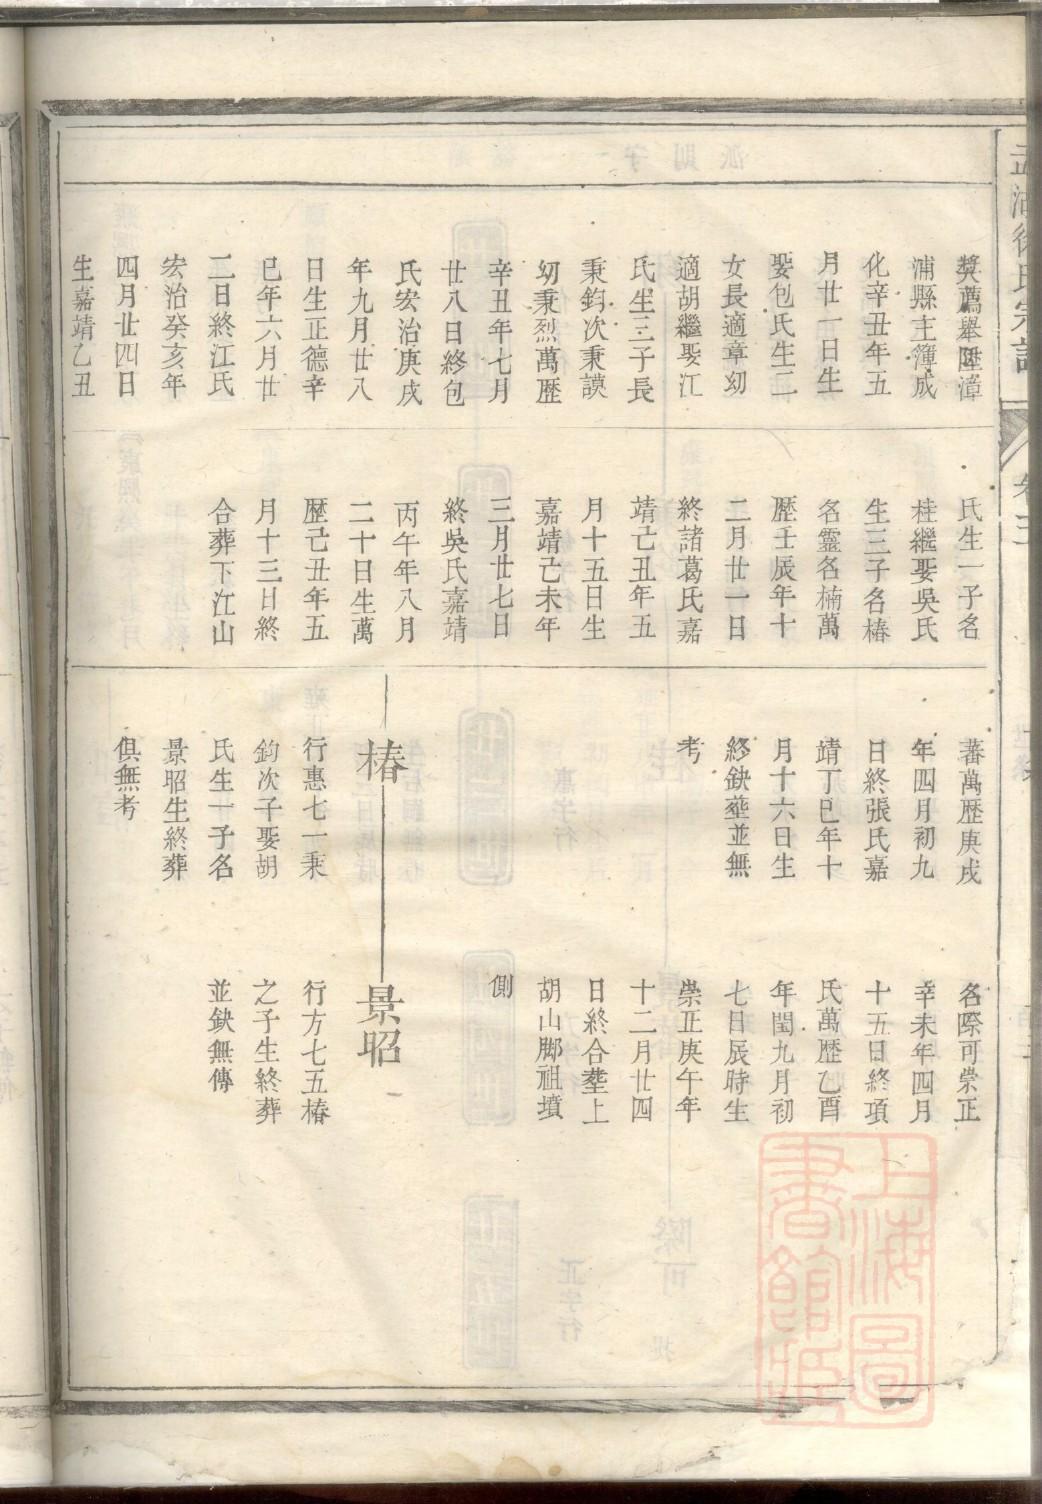 獎薦舉陞漳
浦縣主簿成
化辛丑年五
月廿一日生
娶包氏生二
女長適章幼
適胡繼娶江
氏生三子長
秉鈞次秉謨
幼秉烈萬歷
辛丑年七月
廿八日終包
氏宏治庚戌
年九月廿八
日生正德辛
巳年六月廿
二日終江氏
宏治癸亥年
四月廿四日
生嘉靖乙丑
氏生一子名
桂繼娶吳氏
生三子名椿
名靈名楠萬
歷壬辰年十
二月廿一日
終諸葛氏嘉
靖己丑年五
月十五日生
嘉靖己未年
三月廿七日
終吳氏嘉靖
丙午年八月
二十日生萬
歷己丑年五
月十三日終
合葬下江山
蕃萬歷庚戌
年四月初九
日終張氏嘉
靖丁巳年十
月十六日生
終缺塟並無
考
椿
行惠七一秉
鈞次子娶胡
氏生一子名
景昭生終葬
俱無考
名際可崇正
辛未年四月
十五日終項
氏萬歷乙酉
年閏九月初
七日辰時生
崇正庚午年
十二月廿四
日終合塟上
胡山脚祖墳
側
景昭
行方七五椿
之子生終葬
並缺無傳
上海圖
書館藏